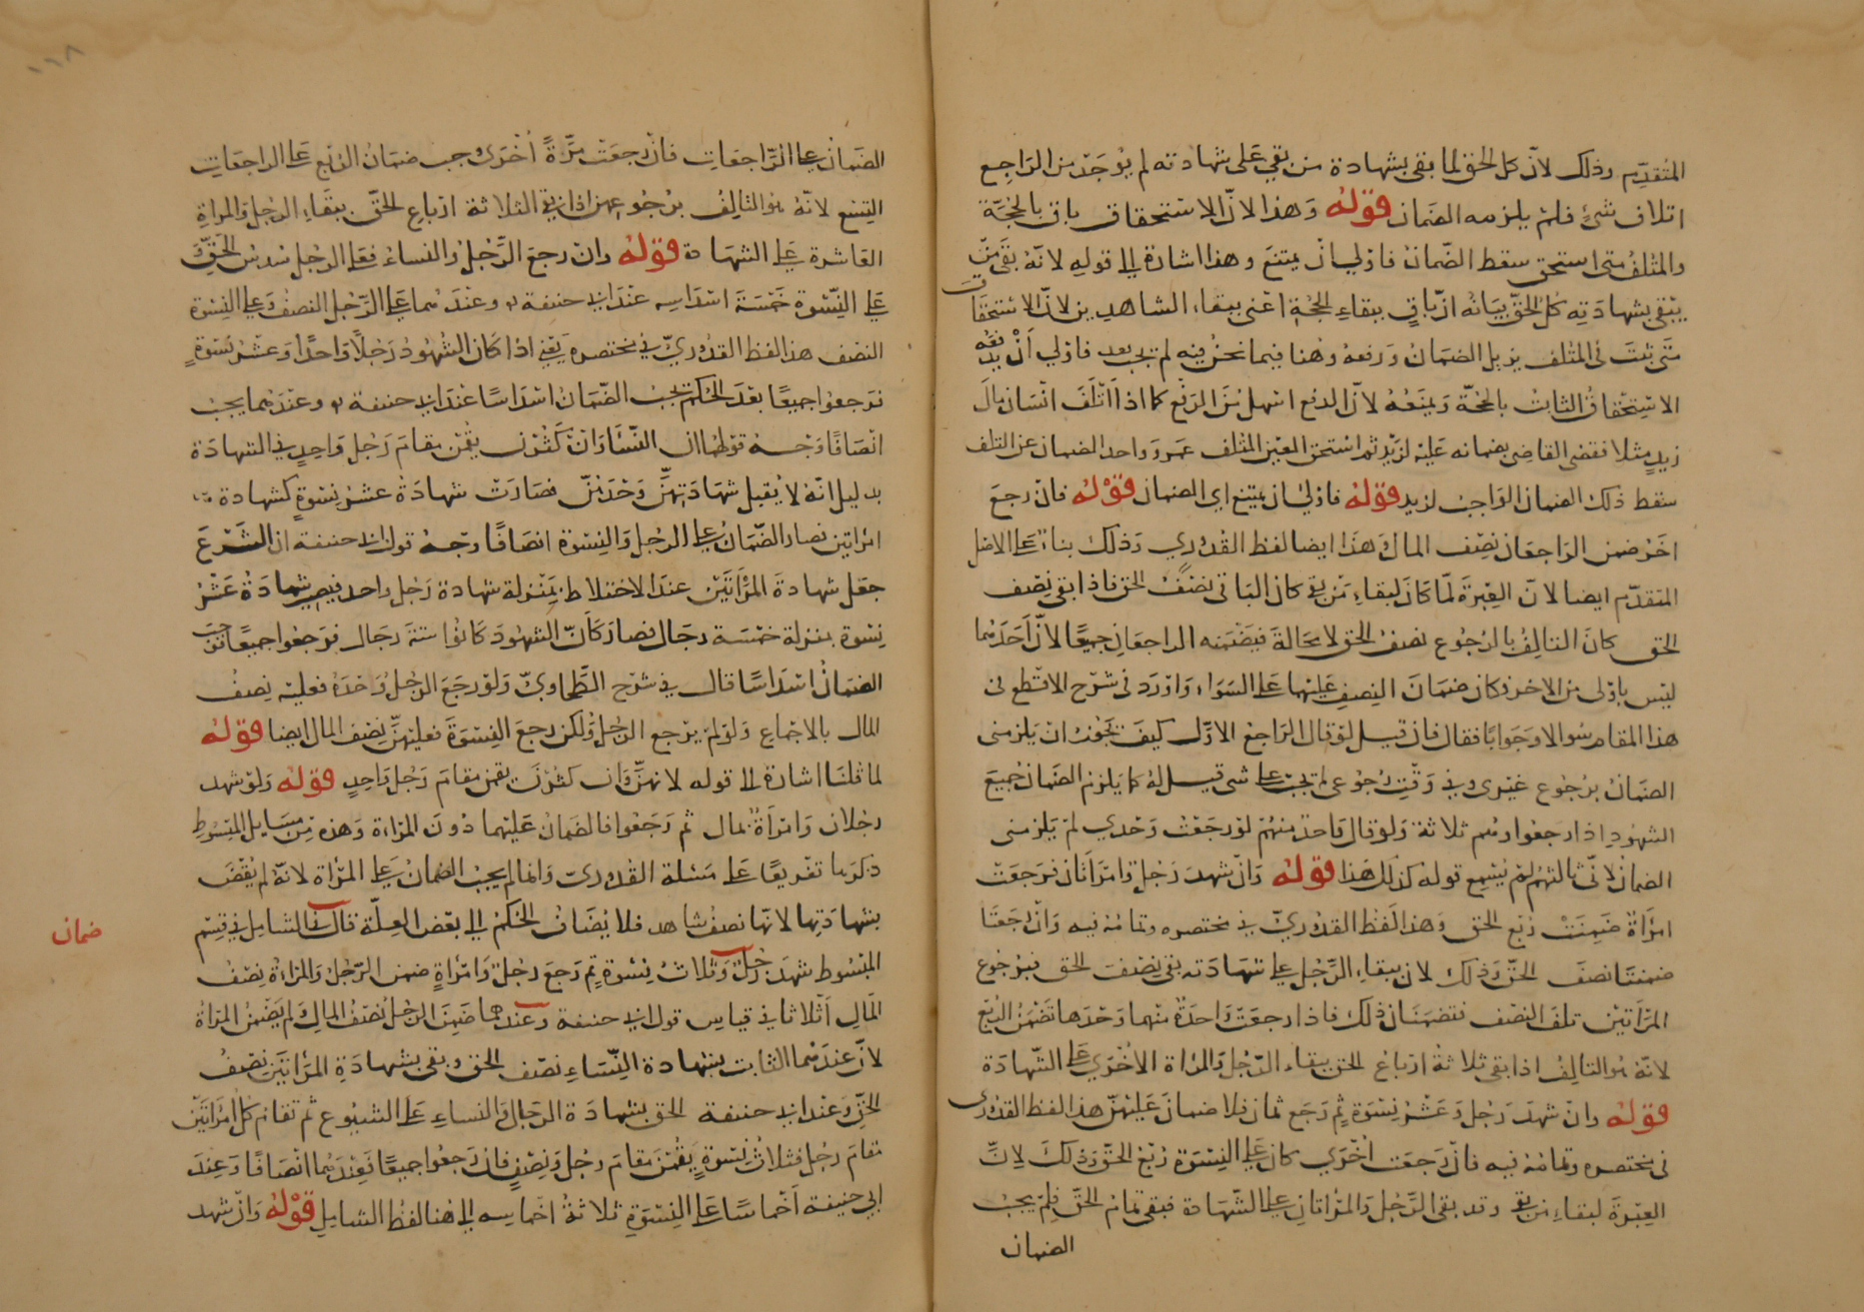 المتقدم وذلك لان كل الحق لما بقي بشهادة من بقي على شهادته لم يوجد من الراجع
اتلاف شئ فلم يلزمه الضمان قوله وهذا لان الاستحقاق باق بالحجة
والمتلف متى استحق سقط الضمان فاولى ان يمتنع وهذا اشارة الى قوله لانه بقي من
يبقى بشهادته كل الحق بيانه ان باق ببقاء الحجة اعنى ببقاء الشاهدين لان الاستحقاق
متى ثبت فى المتلف يزيل الضمان ورفعه وهنا فيما نحن فيه لم يجب بعد فاولى ان يدفعه
الاستحقاق الثابت بالحجة ويمنعه لان الدفع اسهل من الرفع كما اذا اتلف انسان مال
زيد مثلا فقضى القاضى بضمانه عليه لزيد ثم استحق المعين المتلف عمرو واحد الضمان عن التلف
سقط ذلك الضمان الواجب لزيد قوله فاولى ان يمتنع اى الضمان قوله فان رجع
اخر ضمن الراجعان نصف المال هذا ايضا لفظ القدورى وذلك بناء على الاصل
المتقدم ايضا لان العبرة لما كان لبقاء من بقى كان الباقى نصف الحق فاذا بقى نصف
الحق كان التالف بالرجوع نصف الحق لا محالة فيضمنه الراجعان جميعا لان احدهما
ليس باولى من الاخر فكان ضمان النصف عليهما على السواء واورد فى شرح الاقطع فى
هذا المقام سوالا وجوابا فقال فان قيل لو قال الراجع الاول كيف يجوز ان يلزمنى
الضمان برجوع غيرى وفى وقت رجوعى لم يجب على شى قيل له كما يلزم الضمان جميع
الشهود اذا رجعوا وهم ثلاثة ولو قال واحد منهم لو رجعت وحدي لم يلزمنى
الضمان لان ثالثهم لم يسمع قوله كذلك هذا قوله وان شهد رجل وامراتان فرجعت
امراة ضمنت ربع الحق وهذا لفظ القدورى في مختصره وتمامه فيه وان رجعتا
ضمنتا نصف الحق وذلك لان ببقاء الرجل على شهادته بقى نصف الحق فبرجوع
المراتين تلف النصف فتضمنان ذلك فاذا رجعت واحدة منهما وحدها تضمن الربع
لانه هو التالف اذا بقى ثلاثة ارباع الحق ببقاء الرجل والمراة الاخرى على الشهادة
قوله وان شهد رجل وعشر نسوة ثم رجع ثمان فلا ضمان عليهن هذا لفظ القدورى
فى مختصره وتمامه فيه فان رجعت اخرى كان على النسوة ربع الحق وذلك لان
العبرة لبقاء من بقى وقد بقى الرجل والمراتان على الشهادة فبقى تمام الحق فلم يجب
الضمان
الضمان على الراجعات فان رجعت مرة اخرى وجب ضمان الربع على الراجعات
التسع لانه هو التالف برجوعهن اذا بقى الثلاثة ارباع الحق ببقاء الرجل والمراة
العاشرة على الشهادة قوله وان رجع الرجل والنساء فعلى الرجل سدس الحق و
على النسوة خمسة اسداسه عند ابى حنيفة وعندهما على الرجل النصف وعلى النسوة
النصف هذا لفظ القدورى فى مختصره يعنى اذا كان الشهود رجلا واحدا وعشر نسوة
فرجعوا جميعا بعد الحكم يجب الضمان اسداسا عند ابى حنيفة وعندهما يجب
انصافا وجه قولهما ان النساء وان كثرن يقمن مقام رجل واحد فى الشهادة
بدليل انه لا يقبل شهادتهن وحدهن فصارت شهادة عشر نسوة كشهادة
امراتين فصار الضمان على الرجل والنسوة انصافا وجه قول ابى حنيفة ان الشرع
جعل شهادة المراتين عند الاختلاط بمنزلة شهادة رجل واحد فيصير شهادة عشر
نسوة بمنزلة خمسة رجال فصار كان الشهود كانوا ستة رجال فرجعوا جميعا فوجب
الضمان اسداسا قال فى شرح الطحاوى ولو رجع الرجل وحده فعليه نصف
المال بالاجماع ولو لم يرجع الرجل ولكن رجع النسوة فعليهن نصف المال ايضا قوله
لما قلنا اشارة الى قوله لانهن وان كثرن يقمن مقام رجل واحد قوله ولو شهد
رجلان وامراة بمال ثم رجعوا فالضمان عليهما دون المراة وهذه من مسايل المبسوط
ذكرها تفريعا على مسئلة القدورى وانما لم يجب الضمان على المراة لانه لم يقض
بشهادتها لانها نصف شاهد فلا يضاف الحكم الى بعض العلة قال فى الشامل فى قسم
المبسوط شهد رجل وثلاث نسوة ثم رجع رجل وامراة ضمن الرجل والمراة نصف
المال اثلاثا فى قياس قول ابى حنيفة وعندهما ضمن الرجل نصف المال ولم يضمن المراة
لان عندهما الثابت بشهادة النساء نصف الحق وبقى بشهادة المراتين نصف
الحق وعند ابى حنيفة الحق بشهادة الرجال والنساء على الشيوع ثم تقام كل امراتين
مقام رجل فثلاث نسوة يقمن مقام رجل ونصف فان رجعوا جميعا فعندهما انصافا وعند
ابى حنيفة اخماسا على النسوة ثلاثة اخماسه الى هنا لفظ الشامل قوله وان شهد
ضمان